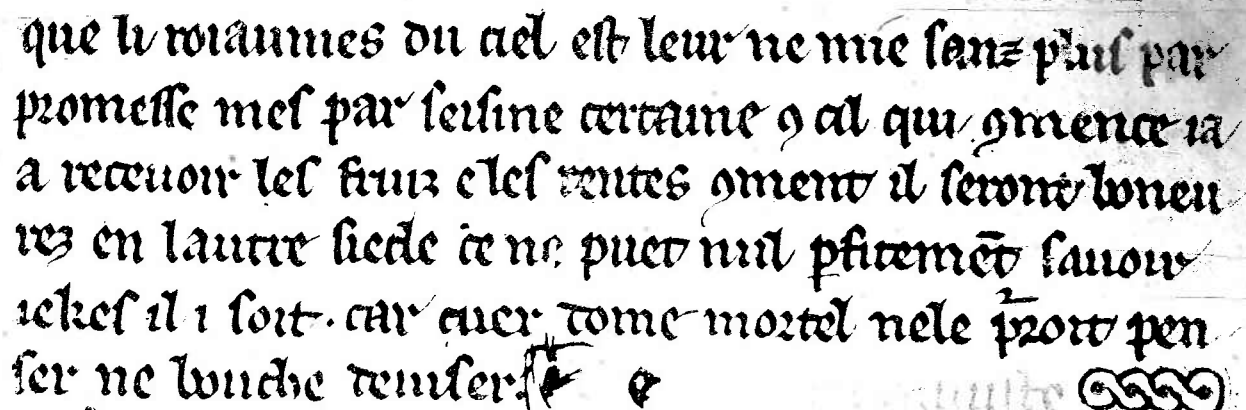 que li roiaumes du ciel est leur ne mie sanz plus par
promesse mes par seisine certaine ꝯ cil qui ꝯmence ia
a receuoir les fruiz e les rentes ꝯment il seront boneu
rez en lautre siecle ce ne puet nul ꝑfitemēt sauoir
iekes il i soit. car cuer dome mortel nele porroit pen
ser ne bouche deuiser.